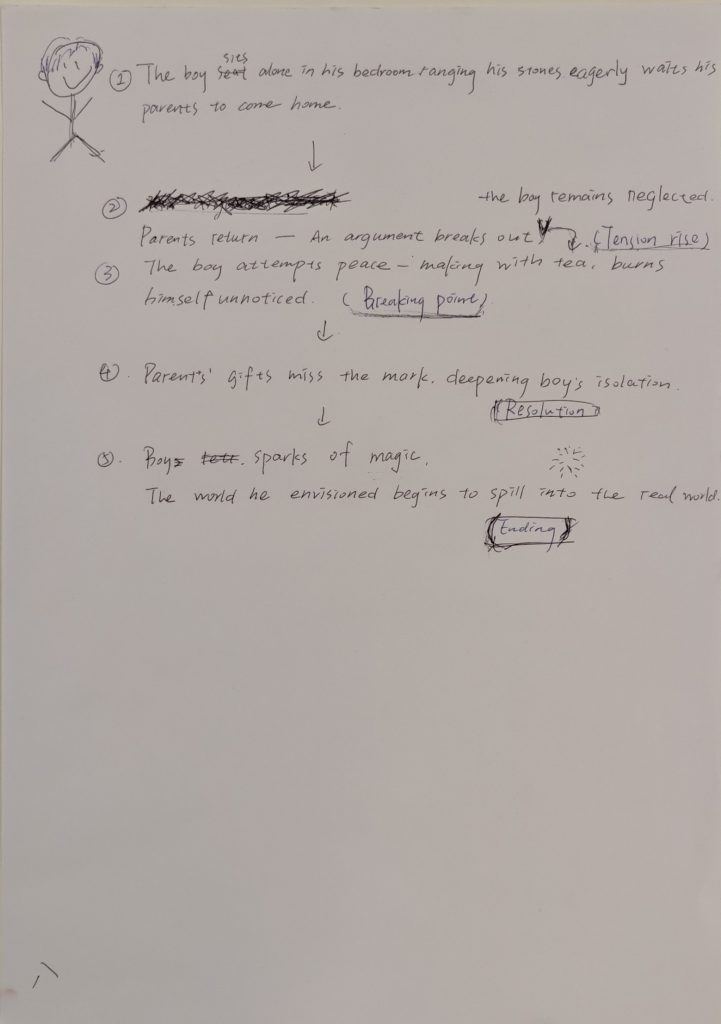 ① The boy sits alone in his bedroom ranging his stones eagerly waits his
parents to come home.
②
the boy remains neglected.
Parents return — An argument breaks out. (Tension rise)
③ The boy attempts peace-making with tea, burns
himself unnoticed. (Breaking point)
④. Parents' gifts miss the mark, deepening boy's isolation.
(Resolution)
⑤. Boy sparks of magic,
The world he envisioned begins to spill into the real world.
(Ending)